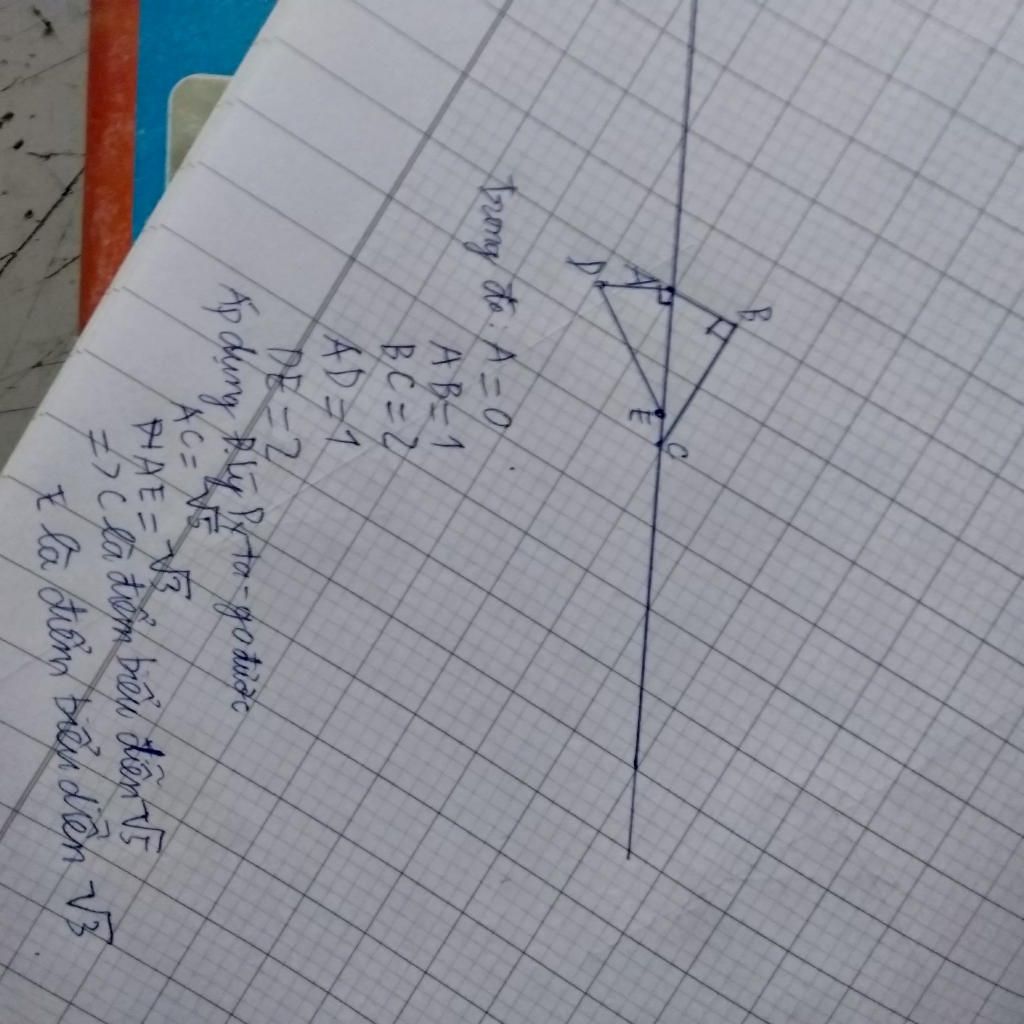 D A B
E C
Trong đó: A = 0
AB = 1
BC = 2
AD = 1
DE = 2
Áp dụng Đlý Py-ta-go được
AC = √5
AE = √3
=> C là điểm biểu diễn √5
E là điểm biểu diễn √3